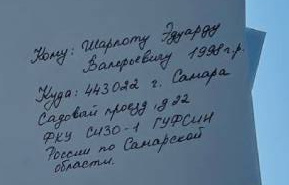 Кому: Шарлоту Эдуарду
Валерьевичу 1998 г.р.
Куда: 443022 г. Самара
Садовый проезд, д 22
ФКУ СИЗО-1 ГУФСИН
России по Самарской
области.